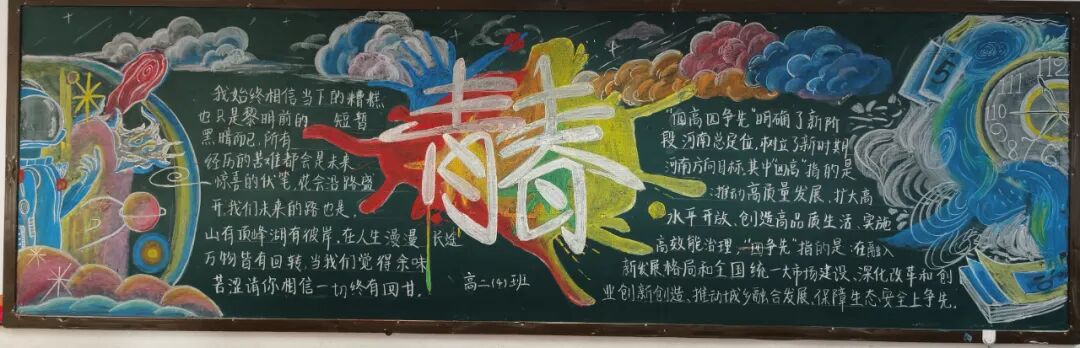 青春
我始终相信当下的糟糕
也只是黎明前的 短暂
黑暗而已,所有
经历的苦难都会是未来
惊喜的伏笔,花会沿路盛
开,我们未来的路也是。
山有顶峰湖有彼岸,在人生漫漫 长途
万物皆有回转,当我们觉得余味
苦涩请你相信一切终有回甘。
高二(4)班
"四高四争先"明确了新阶
段河南总定位,树立了新时期
河南方向目标,其中"四高"指的是
:推动高质量发展、扩大高
水平开放、创造高品质生活、实施
高效能治理,"四争先"指的是:在融入
新发展格局和全国统一大市场建设、深化改革和创
业创新创造、推动城乡融合发展、保障生态安全上争先。
5
11 12 1
10 2
9 3
8 7 6